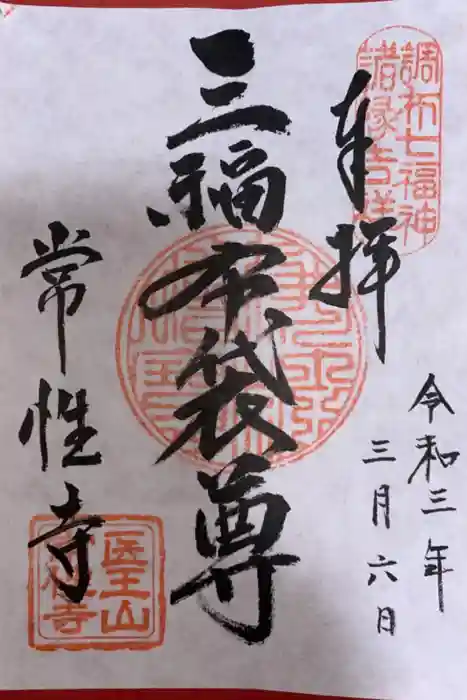 調布七福神
諸縁吉祥
奉拝
令和三年
三月六日
三福布袋尊
常性寺
医王山
常性寺